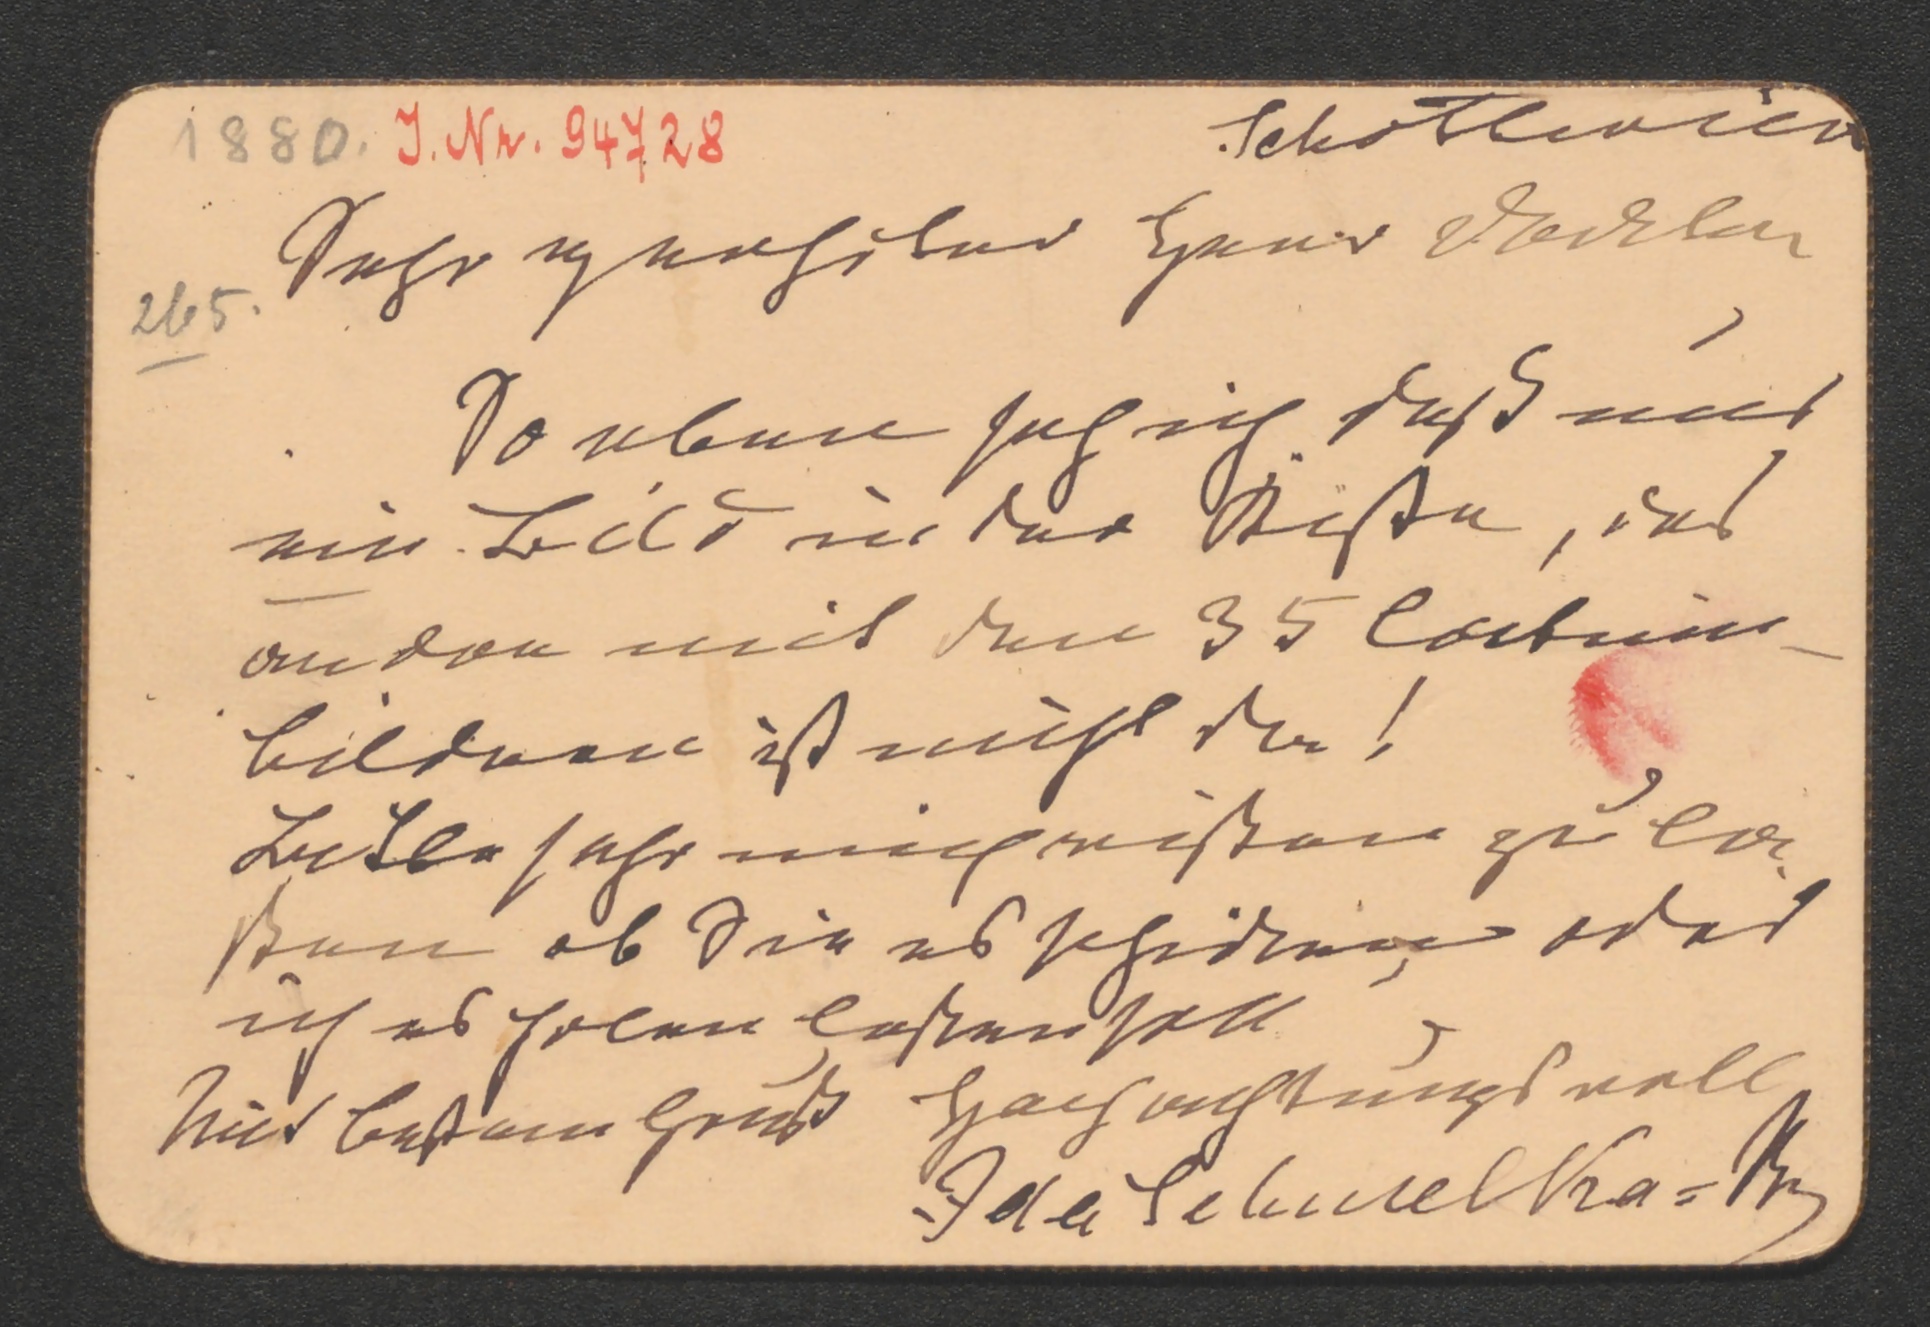 1880. J. Nr. 94728
Schottwien
Sehr geehrter Herr
265.
So eben seh ich daß nur
ein Bild in der Kiste, das
andere mit den 35
bildern ist nicht da!
Bitte sehr mich wißen zu la-
ßen ob Sie es schicken, oder
ich es holen laßen soll
Mit bestem Gruß Hochachtungsvoll
Ida Schuselka=Br